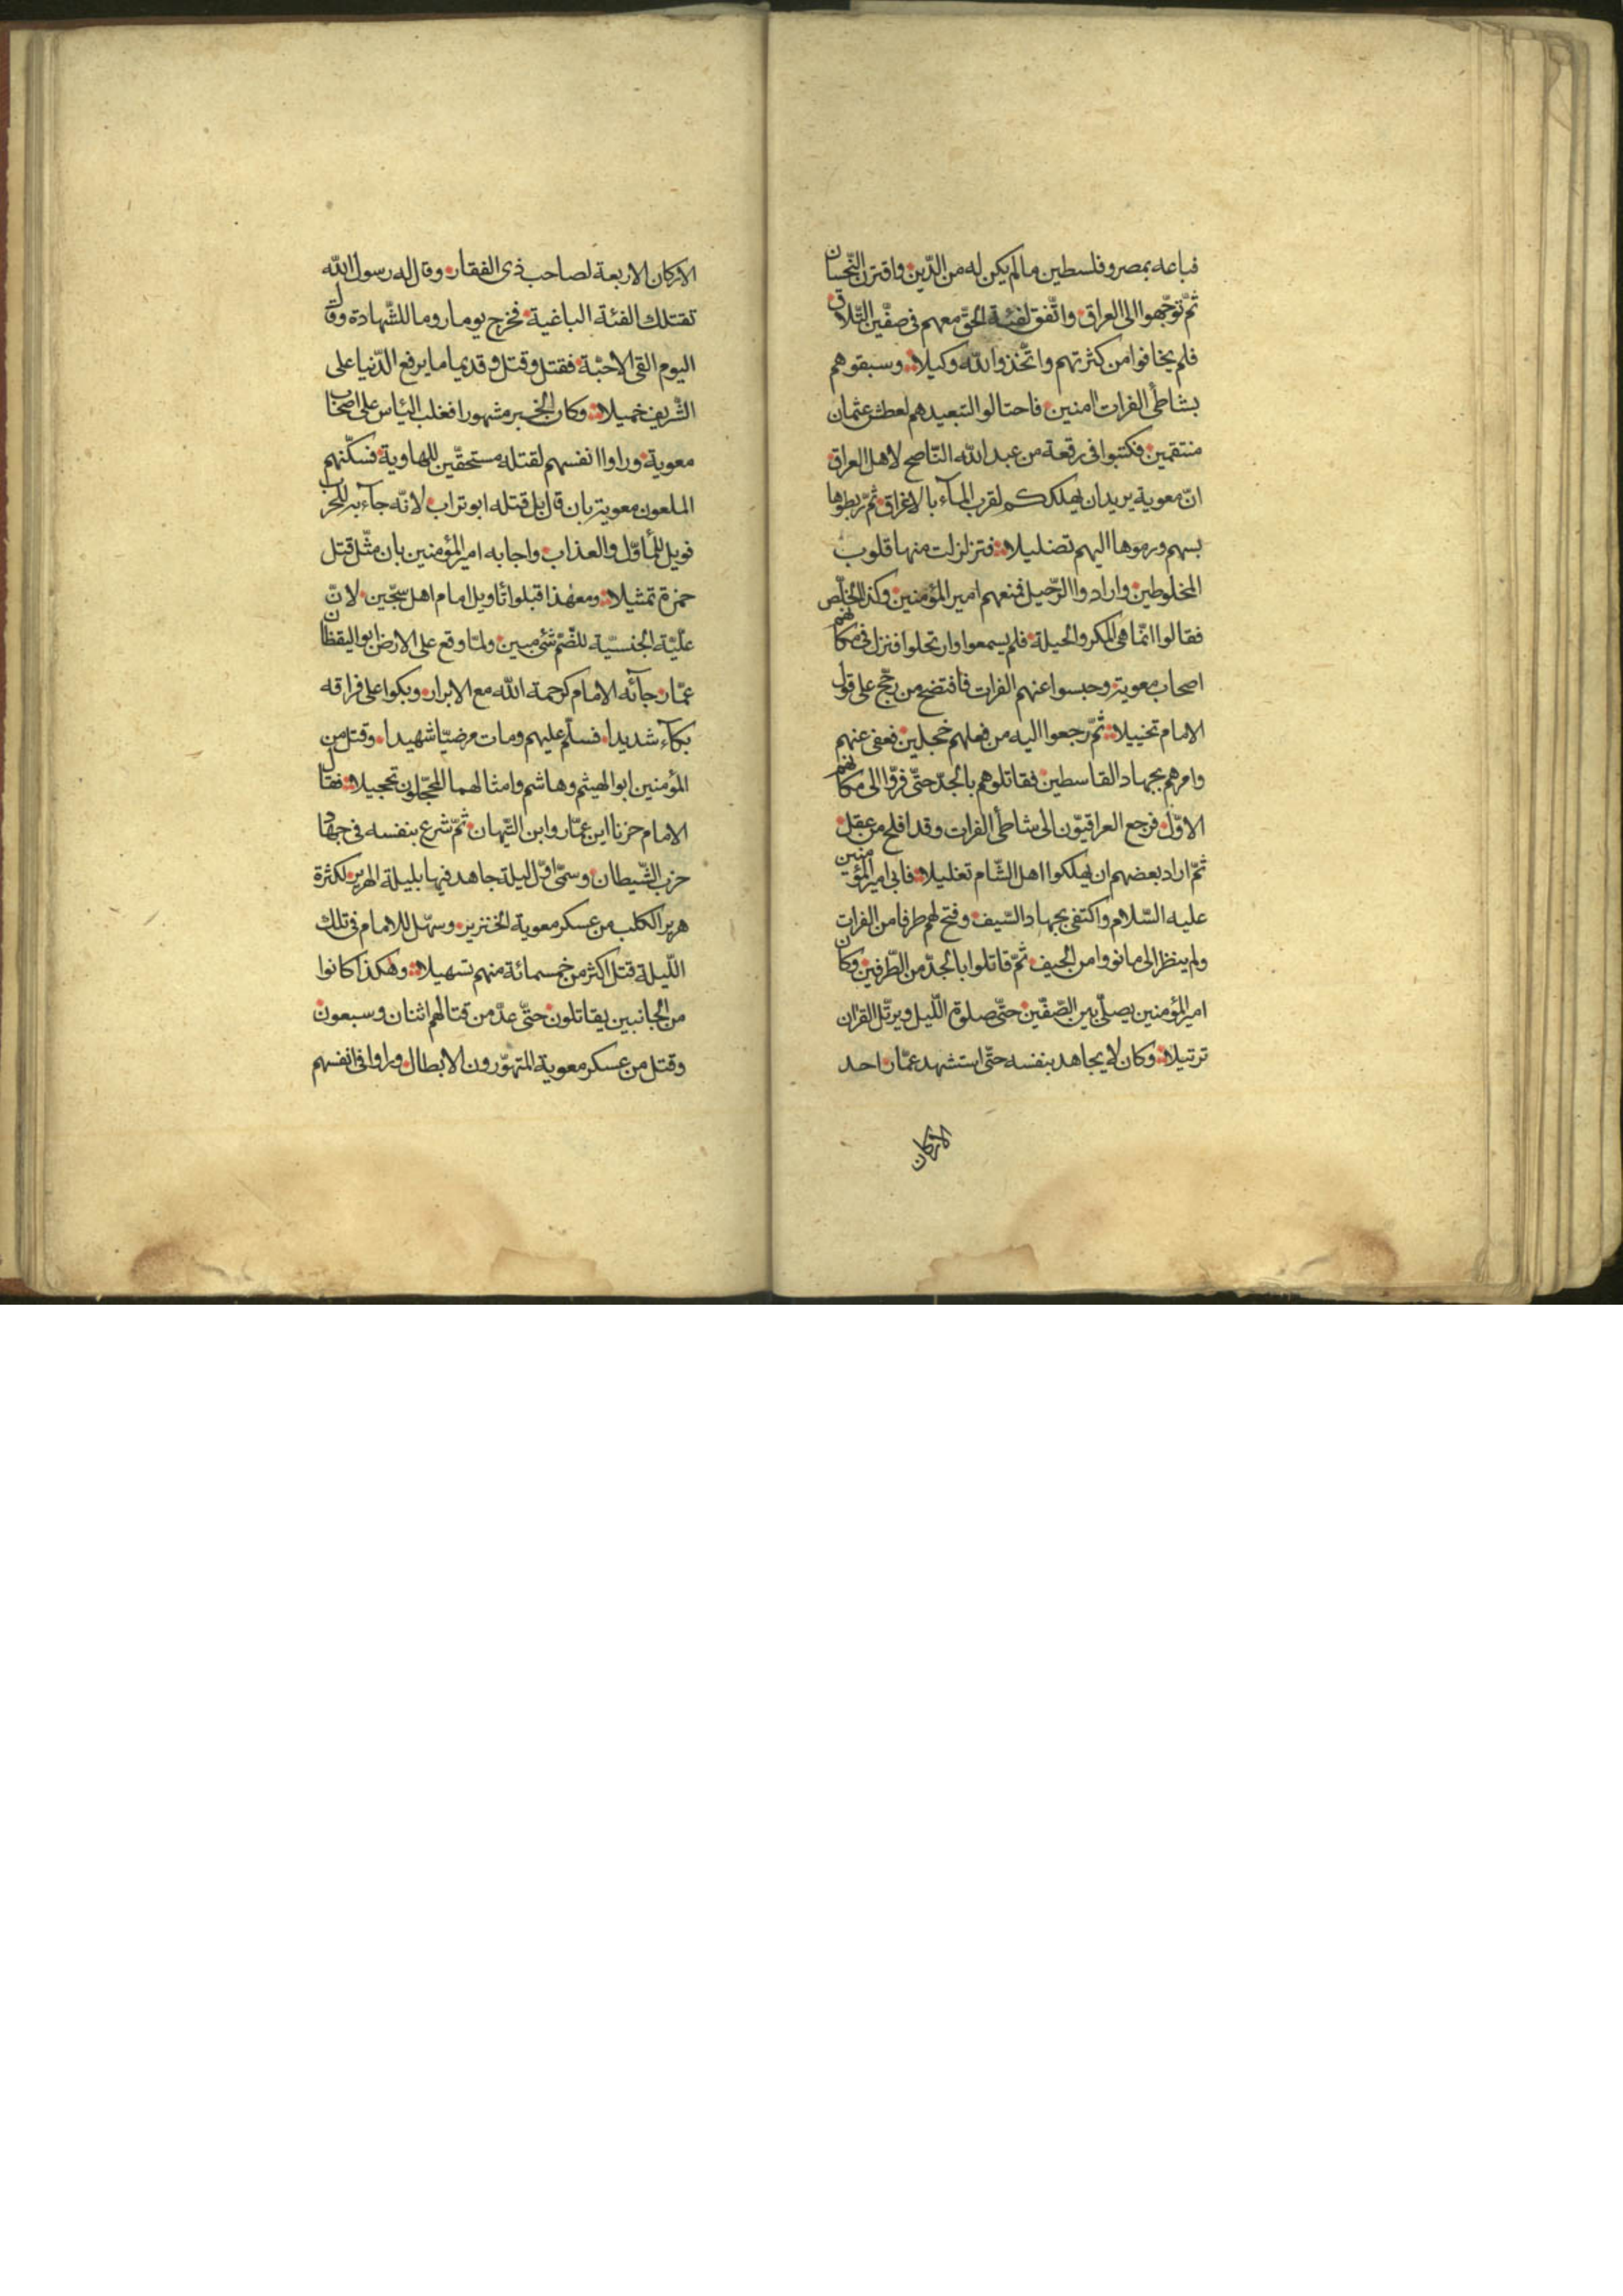 فباعه بمصر وفلسطين ما لم يكن له من الدّين واقترن النّحسان
ثمّ توجّهوا الى العراق واتّفق لفئة الحقّ معهم فى صفّين التّلاق
فلم يخافوا من كثرتهم واتّخذوا الله وكيلا وسبقوهم
بشاطئ الفرات امنين فاحتالوا لتبعيدهم لعطش عثمان
منتقمين فكتبوا فى رقعة من عبد الله النّاصح لاهل العراق
انّ معوية يريد ان يهلككم لقرب المآء بالاغراق ثمّ ربطوها
بسهم ورموها اليهم تضليلا فتزلزلت منها قلوب
المخلوطين وارادوا الرّحيل فمنعهم امير المؤمنين وكذا الخلّص
فقالوا انّما هى المكر والحيلة فلم يسمعوا وارتحلوا فنزل فى مكانهم
اصحاب معوية وحبسوا عنهم الفرات فافتضح من رجّح على قول
الامام تخييلا ثمّ رجعوا اليه من فعلهم خجلين فعفى عنهم
وامرهم بجهاد القاسطين فقاتلوهم بالجدّ حتّى فرّوا الى مكانهم
الاوّل فرجع العراقيّون الى شاطئ الفرات وقد افلح من عقل
ثمّ اراد بعضهم ان يهلكوا اهل الشّام تغليلا فابى امير المؤمنين
عليه السّلام واكتفى بجهاد السّيف وفتح لهم طرفا من الفرات
ولم ينظر الى ما نووا من الحيف ثمّ قاتلوا بالجدّ من الطّرفين وكان
امير المؤمنين يصلّى بين الصّفّين حتّى صلوة اللّيل ويرتّل القران
ترتيلا وكان لا يجاهد بنفسه حتّى استشهد عمّار احد
الاركان
الاركان الاربعة لصاحب ذى الفقار وقال له رسول الله
تقتلك الفئة الباغية فخرج يوما روما للشّهادة وقال
اليوم القى الاحبّة فقتل وقتل وقديما ما يرفع الدّنيا على
الشّريف خميلا وكان الخبر مشهورا فغلب اليأس على اصحاب
معوية وراوا انفسهم لقتله مستحقّين للهاوية فسكّنهم
الملعون معوية بان قال بل قتله ابو تراب لانّه جآء به للحراب
فويل للمأوّل والعذاب واجابه امير المؤمنين بان مثّل قتل
حمزة تمثيلا ومع هذا قبلوا تأويل امام اهل سجّين لانّ
علّيّة الجنسيّة للضّمّ شئ مبين ولمّا وقع على الارض ابو اليقظان
عمّار جآئه الامام كرحمة الله مع الابرار وبكوا على فراقه
بكآء شديدا فسلّم عليهم ومات مرضيّا شهيدا وقتل من
المؤمنين ابو الهيثم وهاشم وامثالهما المحجّلون تحجيلا فقال
الامام حزنا اين عمّار وابن التّيهان ثمّ شرع بنفسه فى جهاد
حزب الشّيطان وسمّى اوّل ليلة جاهد فيها بليلة الهرير لكثرة
هرير الكلب من عسكر معوية الخنزير وسهّل للامام فى تلك
اللّيلة قتل اكثر من خمسمائة منهم تسهيلا وهكذا كانوا
من الجانبين يقاتلون حتّى عدّ من قتالهم اثنان وسبعون
وقتل من عسكر معوية المتهوّرون الابطال وراوا فى انفسهم